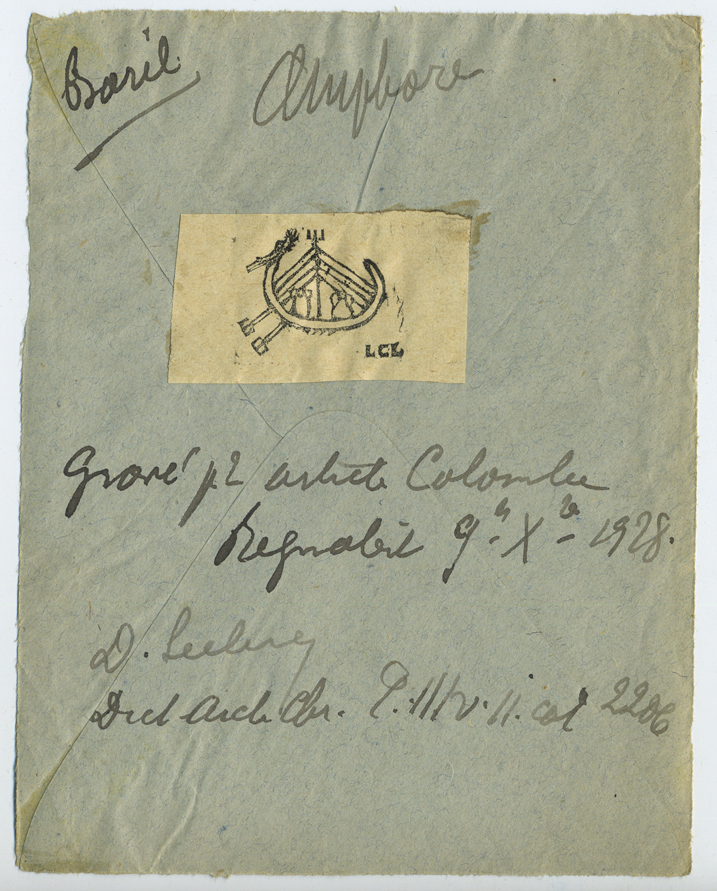 Baril
Amphore
LCL
Gravé pr article Colombe
Regnabit 9 X 1928.
D. Leclercq
Dict Arch Chr. T. III v. II. col 2206